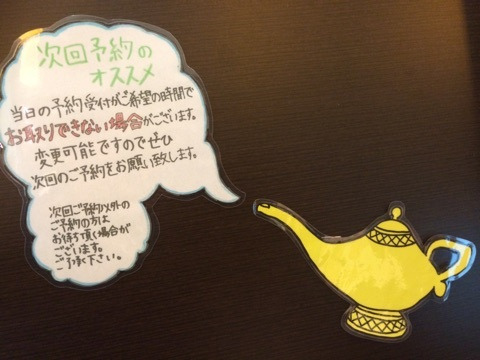 次回予約の
オススメ
当日の予約受付がご希望の時間で
お取りできない場合がございます。
変更可能ですのでぜひ
次回のご予約をお願い致します。
次回ご予約以外の
ご予約の方は
お待ち頂く場合が
ございます。
ご了承下さい。